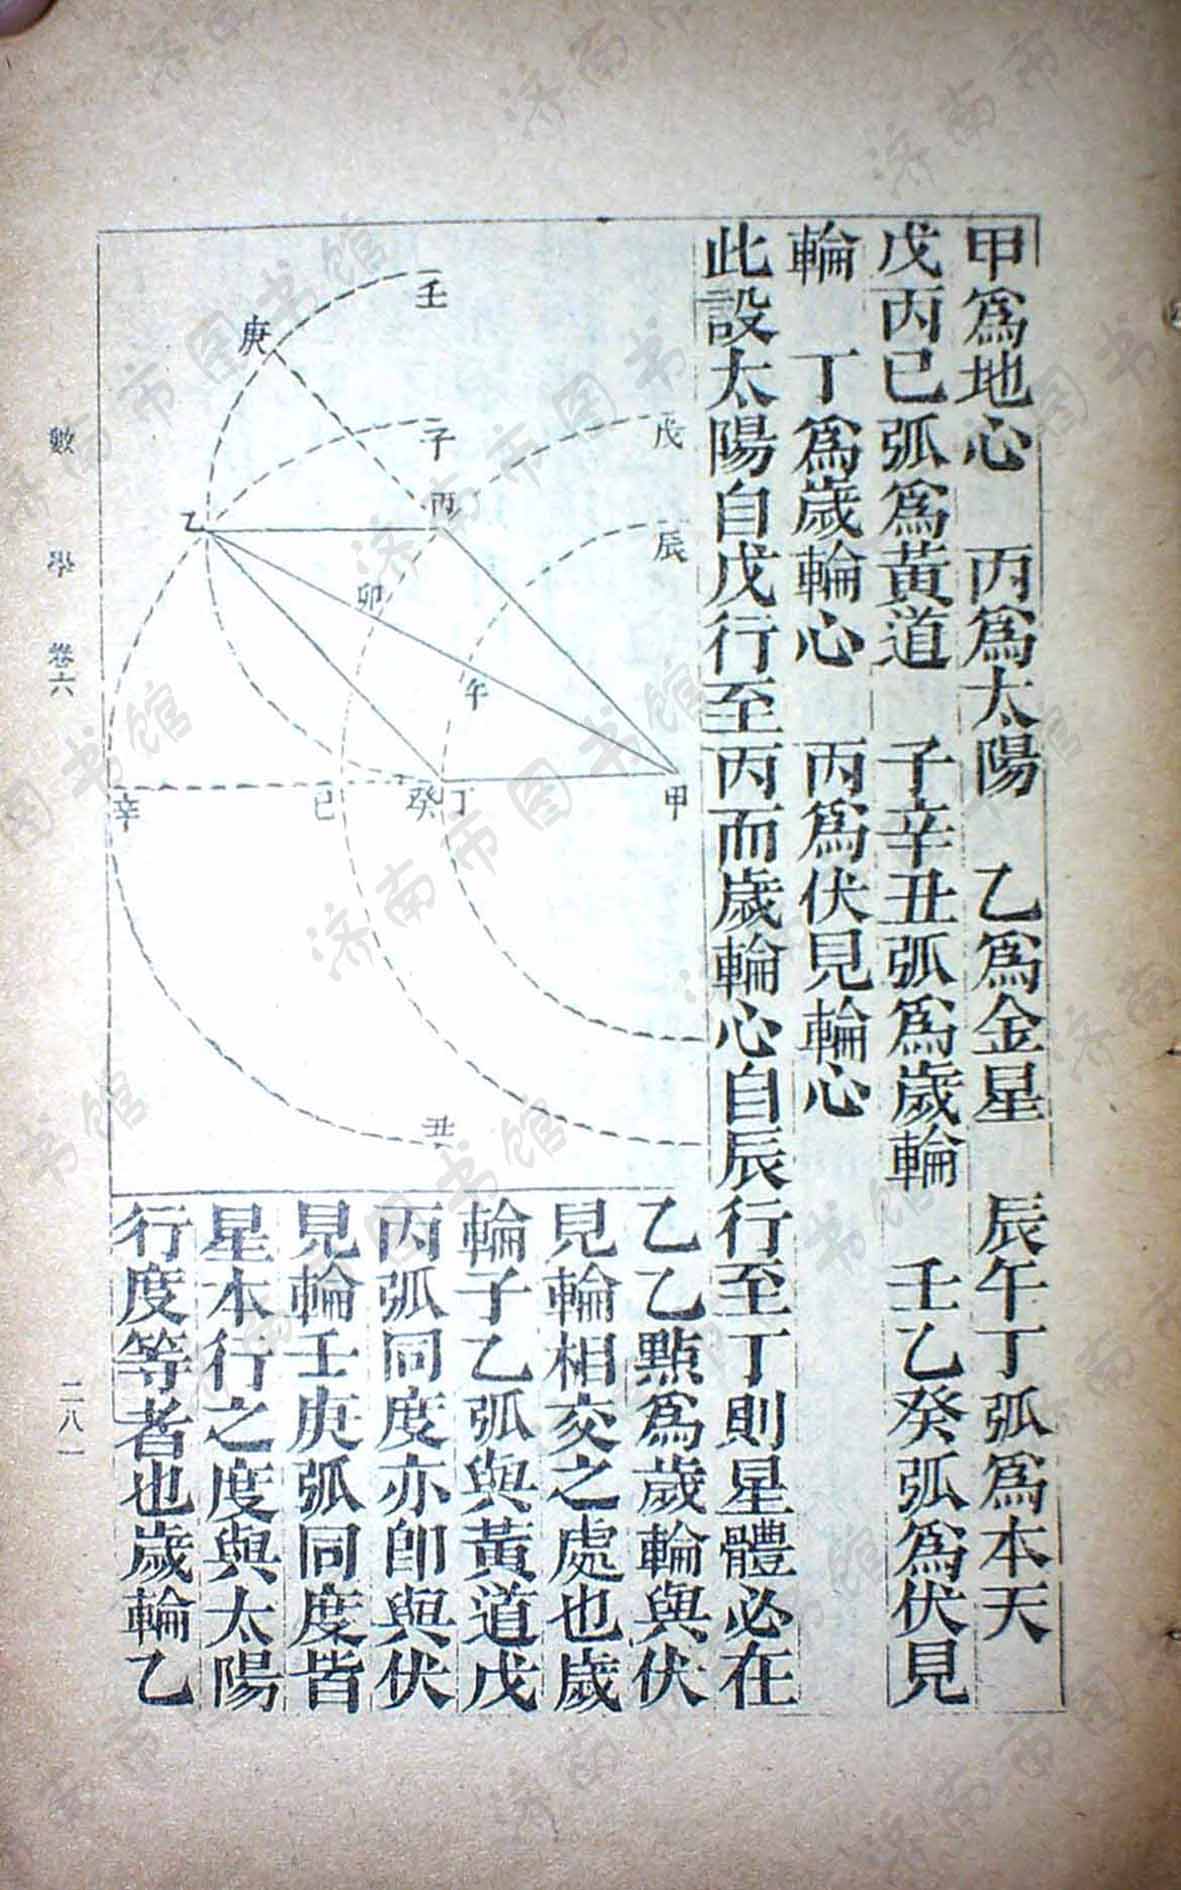 甲爲地心　丙爲太陽　乙爲金星　辰午丁弧爲本天
戊丙已弧爲黃道　子辛丑弧爲歲輪　壬乙癸弧爲伏見
輪　丁爲歲輪心　丙爲伏見輪心
此設太陽自戊行至丙而歲輪心自辰行至丁則星體必在
乙乙點爲歲輪與伏
見輪相交之處也歲
輪子乙弧與黃道戊
丙弧同度亦卽與伏
見輪壬庚弧同度皆
星本行之度與太陽
行度等者也歲輪乙
壬
庚
子
戊
乙
丙
辰
卯
午
辛
已
癸
丁
甲
丑
數學 卷六
二八一
济南市图书馆